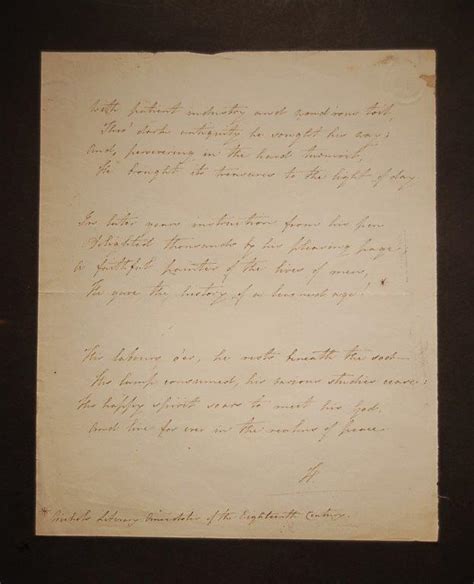 With patient industry and toil,
Thro' dark antiquity he sought his way;
And, persevering in the hard turmoil,
He brought its treasures to the light of day
In later years instruction from his pen
Delighted thousands by his pleasing page;
A faithful painter of the lives of men,
He gave the history of a learned age!
His labours o'er, he rests beneath the sod—
His lamp consumed, his various studies cease:
His happy spirit soars to meet his God,
And live for ever in the realms of peace.
H
Nichols Literary Anecdotes of the Eighteenth Century.